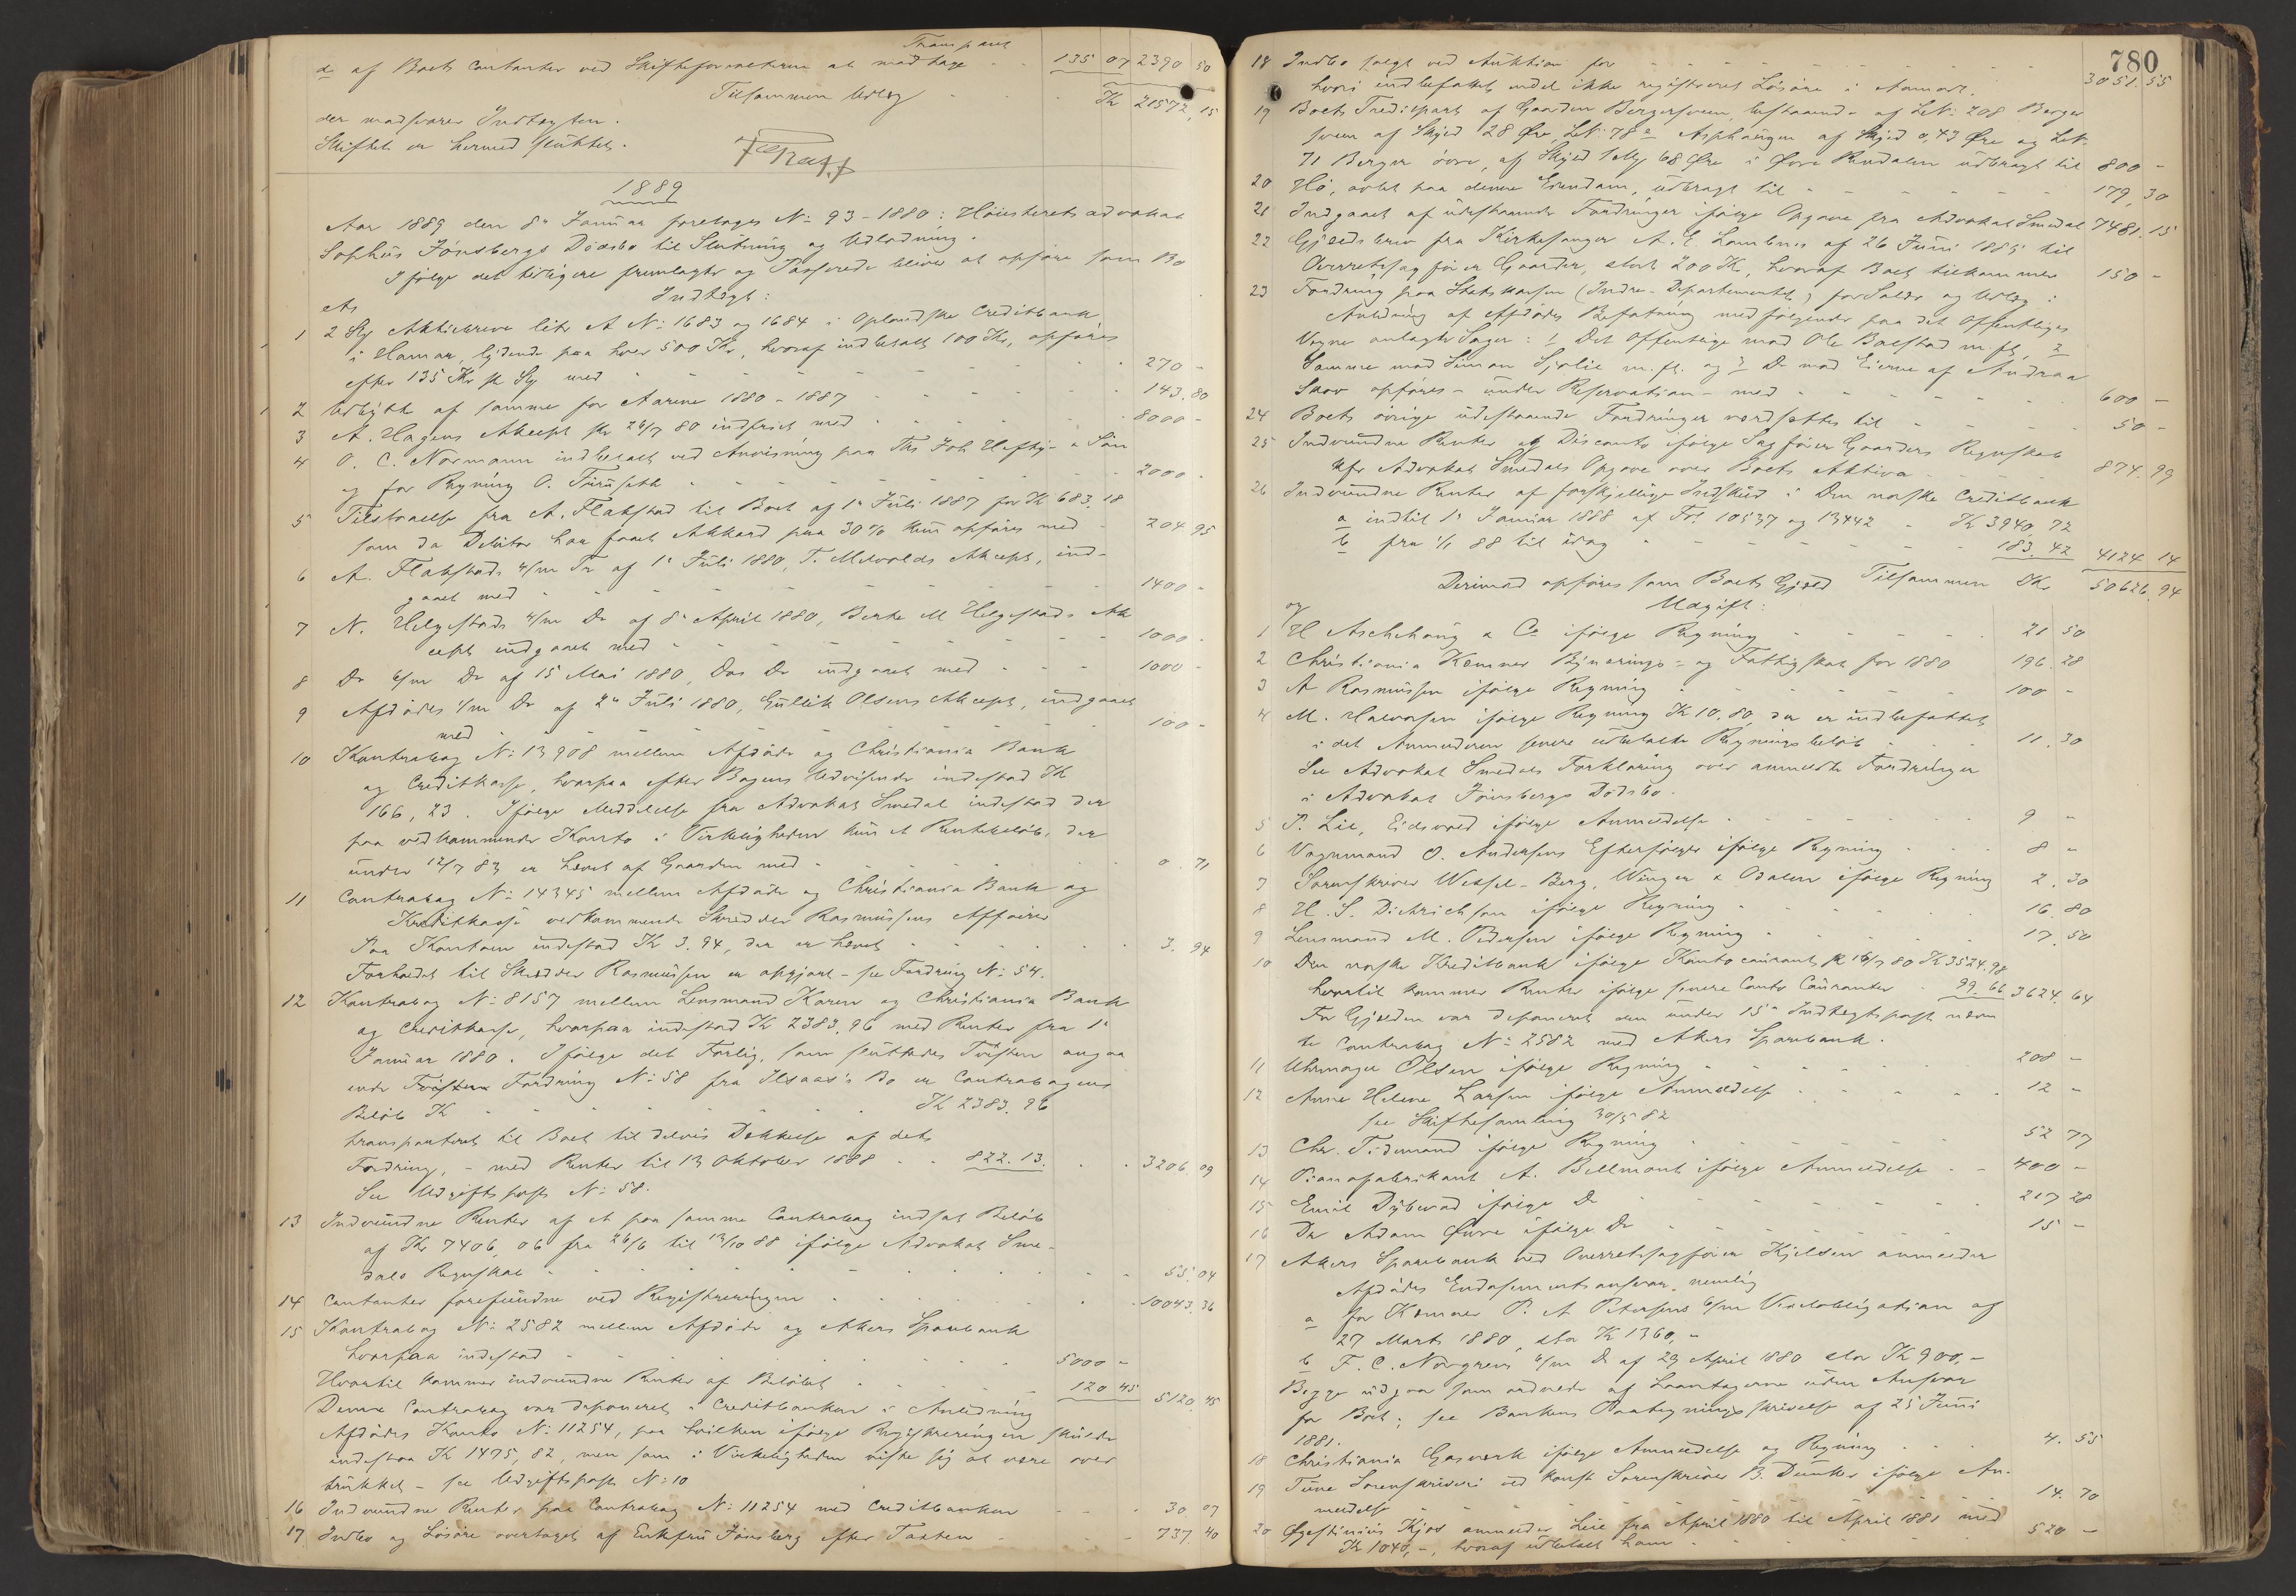 Transport
d. af Boets Contanter ved Skifteforvalteren at modtage 135 07 2390 50
Tilsammen Udlæg Kr 21572,15
der modsvarer Indtægten.
Skiftet er hermed sluttet.
1889
Aar 1889 den 8de Januar foretoges No 93-1880: Høiesterets advokat
Sophus Jønsbergs Dødsbo til Slutning og Udlodning.
Ifølge det tidligere fremlagte og Passerede bliver at opføre som Bo
ets
Indtægt:
1 2 Stk Aktiebreve litr A No 1683 og 1684 i Oplandske Creditbank
i Hamar, lydende paa hver 500 Kr, hvoraf indbetalt 100 Kr, opføres
efter 135 Kr pr Stk med 270 -
2 Udbytte af samme for Aarene 1880-1887 143.80
3 A. Hagens Accept pr 26/7 80 indfriet med 8000 -
4 O. C. Normann indbetalt ved Anvisning paa Ths Joh Heftye & Søn
og for Regning O. Furuseth 2000 -
5 Tilstaaelse fra A. Flakstad til Boet af 1ste Juli 1887 for Kr 683.18
som da Debitor har faaet Akkord paa 30 % kun opføres med 204.95
6 A. Flakstads 4/m Tr af 1ste Juli 1880, T. Melvolds Akcept, ind-
gaaet med 1400 -
7 N. Helgestads 4/m Do af 8de April 1880, Berthe M Helgestads Ak
cept indgaaet med 1000 -
8 Do 6/m Do af 15 Mai 1880, Dos Do indgaaet med 1000 -
9 Afdødes 4/m Do af 2den Juli 1880, Gullik Olsens Akcept, indgaaet
med 100 -
10 Kontrabog No 13908 mellem Afdøde og Christiania Bank
og Creditkasse, hvorpaa efter Bogens Udvisende indestod Kr
166,23. Ifølge Meddelelse fra Advokat Smedal indestod der
paa vedkommende Konto i Virkeligheden kun et Rentebeløb, der
under 12/7 83 er hævet af Gaarder med 0.71
11 Contrabog No 14345 mellem Afdøde og Christiania Bank og
Kreditkasse vedkommende Skrædder Rasmussens Affairer
Paa Kontoen indestod Kr 3.94, der er hævet 3.94
Forholdet til Skrædder Rasmussen er opgjort - se Fordring No 54.
12 Kontrabog No 8157 mellem Lensmand Karen og Christiania Bank
og Creditkasse, hvorpaa indestod Kr 2383,96 med Renter fra 1ste
Januar 1880. Ifølge det Forlig, som sluttedes Tvisten angaa
ende Tvisten Fordring No 58 fra Ilsaas's Bo er Contrabogens
Beløb Kr Kr 2383.96
transporteret til Boet til delvis Dækkelse af dets
Fordring, - med Renter til 13 Oktober 1888 822.13. 3206.09
See Udgiftspost No 58.
13 Indvundne Renter af et paa samme Contrabog indsat Beløb
af Kr 7406,06 fra 26/6 til 13/10 88 ifølge Advokat Sme-
dals Regnskab 55.04
14 Contanter forefundne ved Registreringen 10043.36
15 Kontrabog No 2582 mellem Afdøde og Akers Sparebank
hvorpaa indestod 5000 -
Hvortil kommer indvundne Renter af Beløbet 120 45 5120.45
Denne Contrabog var deponeret i Creditbanken i Anledning
Afdødes Konto No 11254, paa hvilken ifølge Registreringen skulde
indestaa Kr 1475,82, men som i Virkeligheden viste sig at være over
trukket - se Udgiftspost No 10
16 Indvundne Renter paa Contrabog No 11254 med Creditbanken 30.07
17 Indbo og Løsøre overtaget af Enkefru Jønsberg efter Taxten 737.40
780
18 Indbo solgt ved Auktion for 3051.55
hvori indbefattet endel ikke registreret Løsøre i Aamodt.
19 Boets Trediepart af Gaarden Bergersveen, bestaaende af LNo 208 Berger
sveen af Skyld 28 Øre LNo 78a Asphaugen af Skyld 0,43 Øre og LNo
71 Berger øvre, af Skyld 1 Mk 68 Øre i Øvre Rendalen udbragt til 800 -
20 Hø, avlet paa denne Eiendom, udbragt til 179,30
21 Indgaaet af udestaaende Fordringer ifølge Opgave fra Advokat Smedal 7481.15
22 Gjeldsbrev fra Kirkesanger A. E. Lambnes af 26 Juni 1885 til
Overretssagfører Gaarder, stort 200 Kr, hvoraf Boet tilkommer 150 -
23 Fordring paa Statskassen (Indre-Departementet) for Salær og Udlæg i
Anledning af Afdødes Befatning med følgende paa det Offentliges
Vegne anlagte Sager: 1) Det Offentlige mod Ole Bolstad m.fl, 2)
Samme mod Simon Sjølie m.fl. og 3) Do mod Eierne af Andraa
Skov opføres - under Reservation - med 600 -
24 Boets øvrige udestaaende Fordringer værdsættes til 50 -
25 Indvundne Renter og Disconto ifølge Sagfører Gaarders Regnskab
kfr Advokat Smedals Opgave over Boets Aktiva 874.99
26 Indvundne Renter af forskjellige Indskud i Den norske Creditbank
a indtil 1ste Januar 1888 af Fol 10537 og 13442 Kr 3940,72
b fra 1/1 88 til idag 183.42 4124 14
Tilsammen Kr 50626.94
Derimod opføres som Boets Gjæld
og Udgift:
1 H Aschehoug & Co ifølge Regning 21 50
2 Christiania Kemner Bynærings- og Fattigskat for 1880 196.28
3 A Rasmussen ifølge Regning 100 -
4 M. Halvorsen ifølge Regning Kr 10.80, der er indbefattet
i det Anmelderen senere udbetalte Regningsbeløb 11.30
See Advokat Smedals Forklaring over anmeldte Fordringer
i Advokat Jønsbergs Dødsbo.
5 P. Lie, Eidsvold ifølge Anmeldelse 9 -
6 Vognmand O. Andersens Efterfølger ifølge Regning 8 -
7 Sorenskriver Wessel-Berg, Winger & Odalen ifølge Regning 2.30
8 H. S. Diedrichsen ifølge Regning 16.80
9 Lensmand M. Pedersen ifølge Regning 17.50
10 Den norske Kreditbank ifølge Conto courant pr 16/7 80 Kr 3524.98
hvortil kommer Renter ifølge senere Conto Couranter 99.66 3624.64
For Gjælden var deponeret den under 15de Indtægtspost nævn
te Contrabog No 2582 med Akers Sparebank.
11 Uhrmager Olsen ifølge Regning 208 -
12 Anne Helene Larsen ifølge Anmeldelse 12 -
see Skiftesamling 30/5 82
13 Chr. Tidemand ifølge Regning 52 77
14 Pianofabrikant A. Bellmont ifølge Anmeldelse 400 -
15 Emil Dybwad ifølge Do 217 28
16 Dr Adam Owre ifølge Do 15 -
17 Akers Sparebank ved Overretssagfører Kjelsen anmelder
Afdødes Endossementsansvar, nemlig
a for Kemner P. A Petersens 6/m Vexelobligation af
27 Marts 1880, stor Kr 1360,-
b F. C. Norgrens 6/m Do af 29 April 1880 stor Kr 900,-
Begge udgaar som ordnede af Laantagerne uden Ansvar
for Boet; see Bankens Paategningsskrivelse af 25 Juni
1881.
18 Christiania Gasværk ifølge Anmeldelse og Regning 4.55
19 Tune Sorenskriveri ved konst Sorenskriver B. Dunker ifølge An-
meldelse 14.70
20 Øgstinius Kjos anmelder Leie fra April 1880 til April 1881 med
Kr 1040,-, hvoraf udbetalt ham 520 -